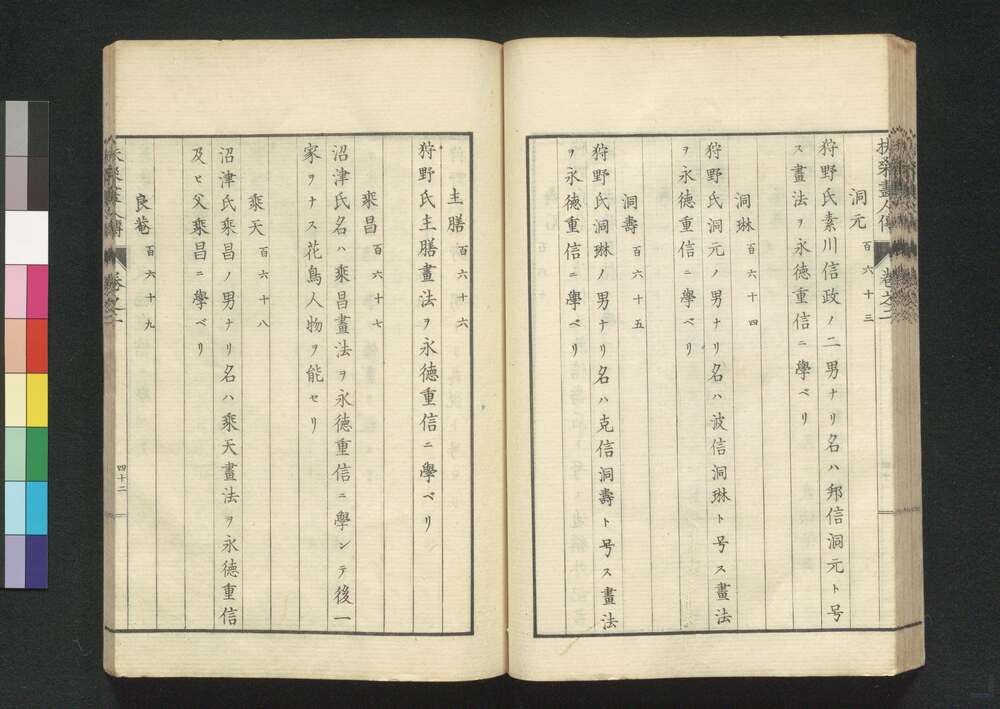 扶桑畫人傳 卷之二
洞元 百六十三
狩野氏素川信政ノ二男ナリ名ハ邦信洞元ト号
ス畫法ヲ永徳重信ニ學ベリ
洞琳 百六十四
狩野氏洞元ノ男ナリ名ハ波信洞琳ト号ス畫法
ヲ永徳重信ニ學ベリ
洞壽 百六十五
狩野氏洞琳ノ男ナリ名ハ克信洞壽ト号ス畫法
ヲ永徳重信ニ學ベリ
主膳 百六十六
狩野氏主膳畫法ヲ永徳重信ニ學ベリ
乘昌 百六十七
沼津氏名ハ乘昌畫法ヲ永徳重信ニ學ンテ後一
家ヲナス花鳥人物ヲ能セリ
乘天 百六十八
沼津氏乘昌ノ男ナリ名ハ乘天畫法ヲ永徳重信
及ヒ父乘昌ニ學ベリ
良菴 百六十九
卷之二 四十二